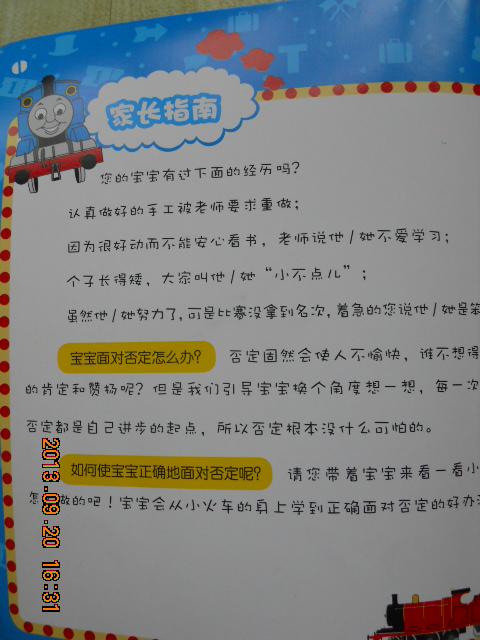 家长指南
您的宝宝有过下面的经历吗?
认真做好的手工被老师要求重做;
因为很好动而不能安心看书,老师说他/她不爱学习;
个子长得矮,大家叫他/她“小不点儿”;
虽然他/她努力了,可是比赛没拿到名次,着急的您说他/她是笨
宝宝面对否定怎么办? 否定固然会使人不愉快,谁不想得
的肯定和赞扬呢?但是我们引导宝宝换个角度想一想,每一次
否定都是自己进步的起点,所以否定根本没什么可怕的。
如何使宝宝正确地面对否定呢? 请您带着宝宝来看一看小
怎 做的吧!宝宝会从小火车的身上学到正确面对否定的好办
2013.09.20 16:31